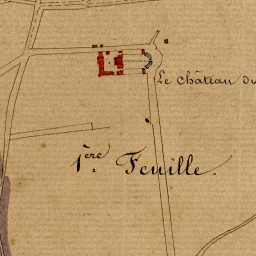 Le château du
1ère Feuille.